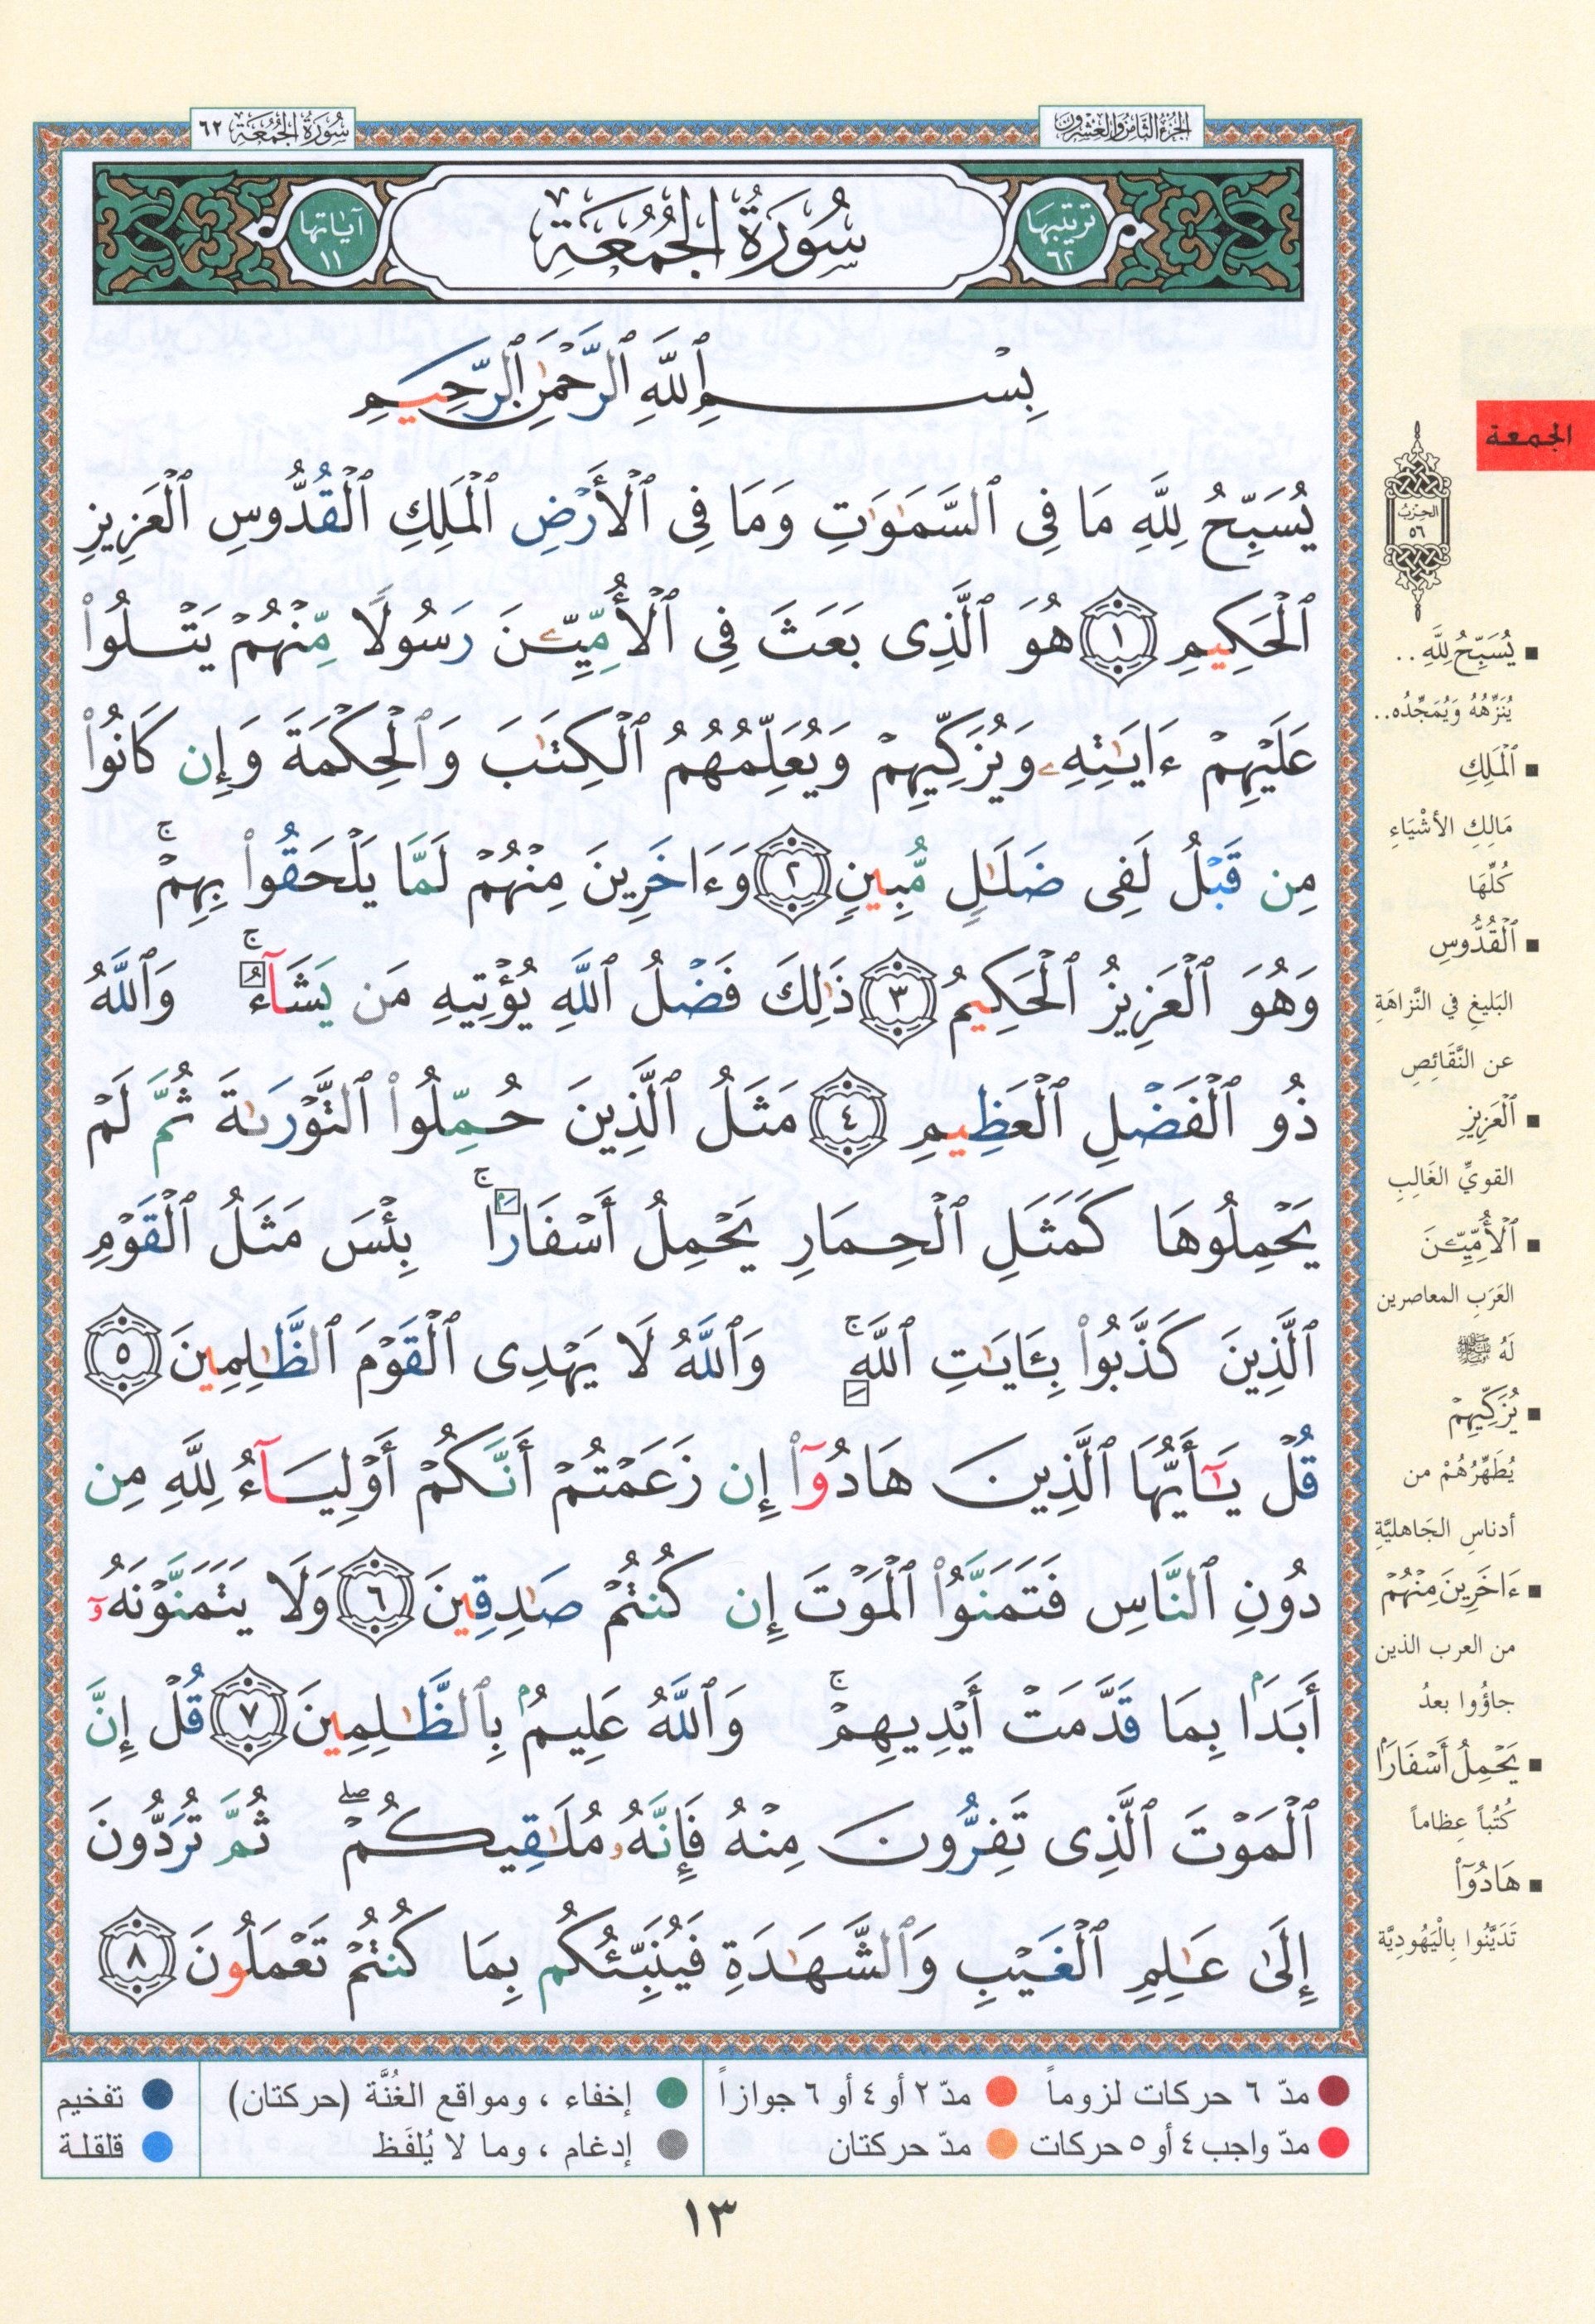 الجزء الثامن والعشرون
سورة الجمعة ٦٢
ترتيبها ٦٢
سُورَةُ الجُمُعَةِ
آياتها ١١
بِسْمِ ٱللَّهِ ٱلرَّحْمَٰنِ ٱلرَّحِيمِ
يُسَبِّحُ لِلَّهِ مَا فِى ٱلسَّمَٰوَٰتِ وَمَا فِى ٱلْأَرْضِ ٱلْمَلِكِ ٱلْقُدُّوسِ ٱلْعَزِيزِ
ٱلْحَكِيمِ ١ هُوَ ٱلَّذِى بَعَثَ فِى ٱلْأُمِّيِّـۧنَ رَسُولًا مِّنْهُمْ يَتْلُوا۟
عَلَيْهِمْ ءَايَٰتِهِۦ وَيُزَكِّيهِمْ وَيُعَلِّمُهُمُ ٱلْكِتَٰبَ وَٱلْحِكْمَةَ وَإِن كَانُوا۟
مِن قَبْلُ لَفِى ضَلَٰلٍ مُّبِينٍ ٢ وَءَاخَرِينَ مِنْهُمْ لَمَّا يَلْحَقُوا۟ بِهِمْ ۚ
وَهُوَ ٱلْعَزِيزُ ٱلْحَكِيمُ ٣ ذَٰلِكَ فَضْلُ ٱللَّهِ يُؤْتِيهِ مَن يَشَآءُ ۚ وَٱللَّهُ
ذُو ٱلْفَضْلِ ٱلْعَظِيمِ ٤ مَثَلُ ٱلَّذِينَ حُمِّلُوا۟ ٱلتَّوْرَىٰةَ ثُمَّ لَمْ
يَحْمِلُوهَا كَمَثَلِ ٱلْحِمَارِ يَحْمِلُ أَسْفَارًۢا ۚ بِئْسَ مَثَلُ ٱلْقَوْمِ
ٱلَّذِينَ كَذَّبُوا۟ بِـَٔايَٰتِ ٱللَّهِ ۚ وَٱللَّهُ لَا يَهْدِى ٱلْقَوْمَ ٱلظَّٰلِمِينَ ٥
قُلْ يَٰٓأَيُّهَا ٱلَّذِينَ هَادُوٓا۟ إِن زَعَمْتُمْ أَنَّكُمْ أَوْلِيَآءُ لِلَّهِ مِن
دُونِ ٱلنَّاسِ فَتَمَنَّوُا۟ ٱلْمَوْتَ إِن كُنتُمْ صَٰدِقِينَ ٦ وَلَا يَتَمَنَّوْنَهُۥٓ
أَبَدًۢا بِمَا قَدَّمَتْ أَيْدِيهِمْ ۚ وَٱللَّهُ عَلِيمٌۢ بِٱلظَّٰلِمِينَ ٧ قُلْ إِنَّ
ٱلْمَوْتَ ٱلَّذِى تَفِرُّونَ مِنْهُ فَإِنَّهُۥ مُلَٰقِيكُمْ ۖ ثُمَّ تُرَدُّونَ
إِلَىٰ عَٰلِمِ ٱلْغَيْبِ وَٱلشَّهَٰدَةِ فَيُنَبِّئُكُم بِمَا كُنتُمْ تَعْمَلُونَ ٨
الجمعة
الحزب ٥٦
▪ يُسَبِّحُ لِلَّهِ ..
يُنَزِّهُهُ وَيُمَجِّدُه..
▪ ٱلْمَلِكِ
مَالِكِ الأشْيَاءِ
كُلِّهَا
▪ ٱلْقُدُّوسِ
البَليغِ في النَّزاهَةِ
عن النَّقَائِصِ
▪ ٱلْعَزِيزِ
القويِّ الغَالِبِ
▪ ٱلْأُمِّيِّـۧنَ
العَرَبِ المعاصرين
لَهُ ﷺ
▪ يُزَكِّيهِمْ
يُطَهِّرُهُمْ من
أدناسِ الجَاهليَّةِ
▪ ءَاخَرِينَ مِنْهُمْ
من العرب الذين
جاؤُوا بعدُ
▪ يَحْمِلُ أَسْفَارًۢا
كُتُباً عِظاماً
▪ هَادُوٓا۟
تَدَيَّنُوا بِالْيَهُودِيَّة
مدّ ٦ حركات لزوماً مدّ ٢ أو ٤ أو ٦ جوازاً إخفاء ، ومواقع الغُنَّة (حركتان) تفخيم
مدّ واجب ٤ أو ٥ حركات مدّ حركتان إدغام ، وما لا يُلفَظ قلقلة
١٣